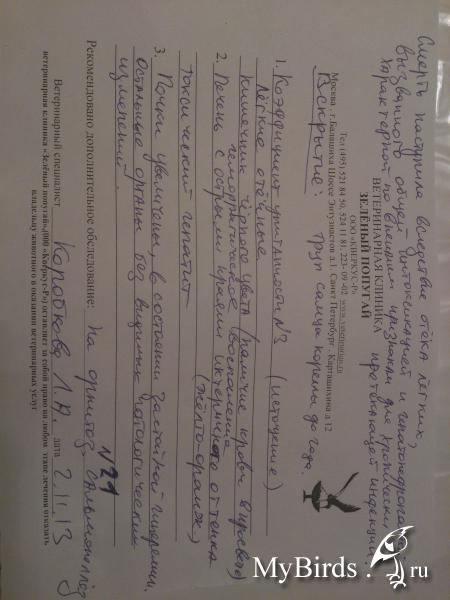 Смерть наступила вследствие отёка легких,
вызванного общей интоксикацией и
характерной по внешним признакам для хронически
протекающей инфекции
ООО «КИЕРКУС-Р»
ВЕТЕРИНАРНАЯ КЛИНИКА
ЗЕЛЁНЫЙ ПОПУГАЙ
Тел (495) 521 84 50, 524 11 81, 223- 09 -02
Москва - г.Балашиха Шоссе Энтузиастов д.1. Санкт Петербург - Карташихина д 12
Вскрытие: труп самца кореллы до года.
1. Коэффициент упитанности №3 (истощение)
Лёгкие отёчные
Кишечник чёрного цвета (наличие крови
геморрагическое воспаление
2. Печень с острыми краями иктеричного оттенка
(жёлто-оранж.)
токсический гепатит
3. Почки увеличены, в состоянии застойной гиперемии.
Остальные органы без видимых патологических
изменений.
№21
Рекомендовано дополнительное обследование: На орнитоз, сальмонеллёз
Ветеринарный специалист Коробкова Л.А дата 2.11.13
ветеринарная клиника «Зелёный попугай»(ООО «Киеркус-Р») оставляет за собой право на любом этапе лечения отказать
владельцу животного в оказании ветеринарных услуг
MyBirds.ru